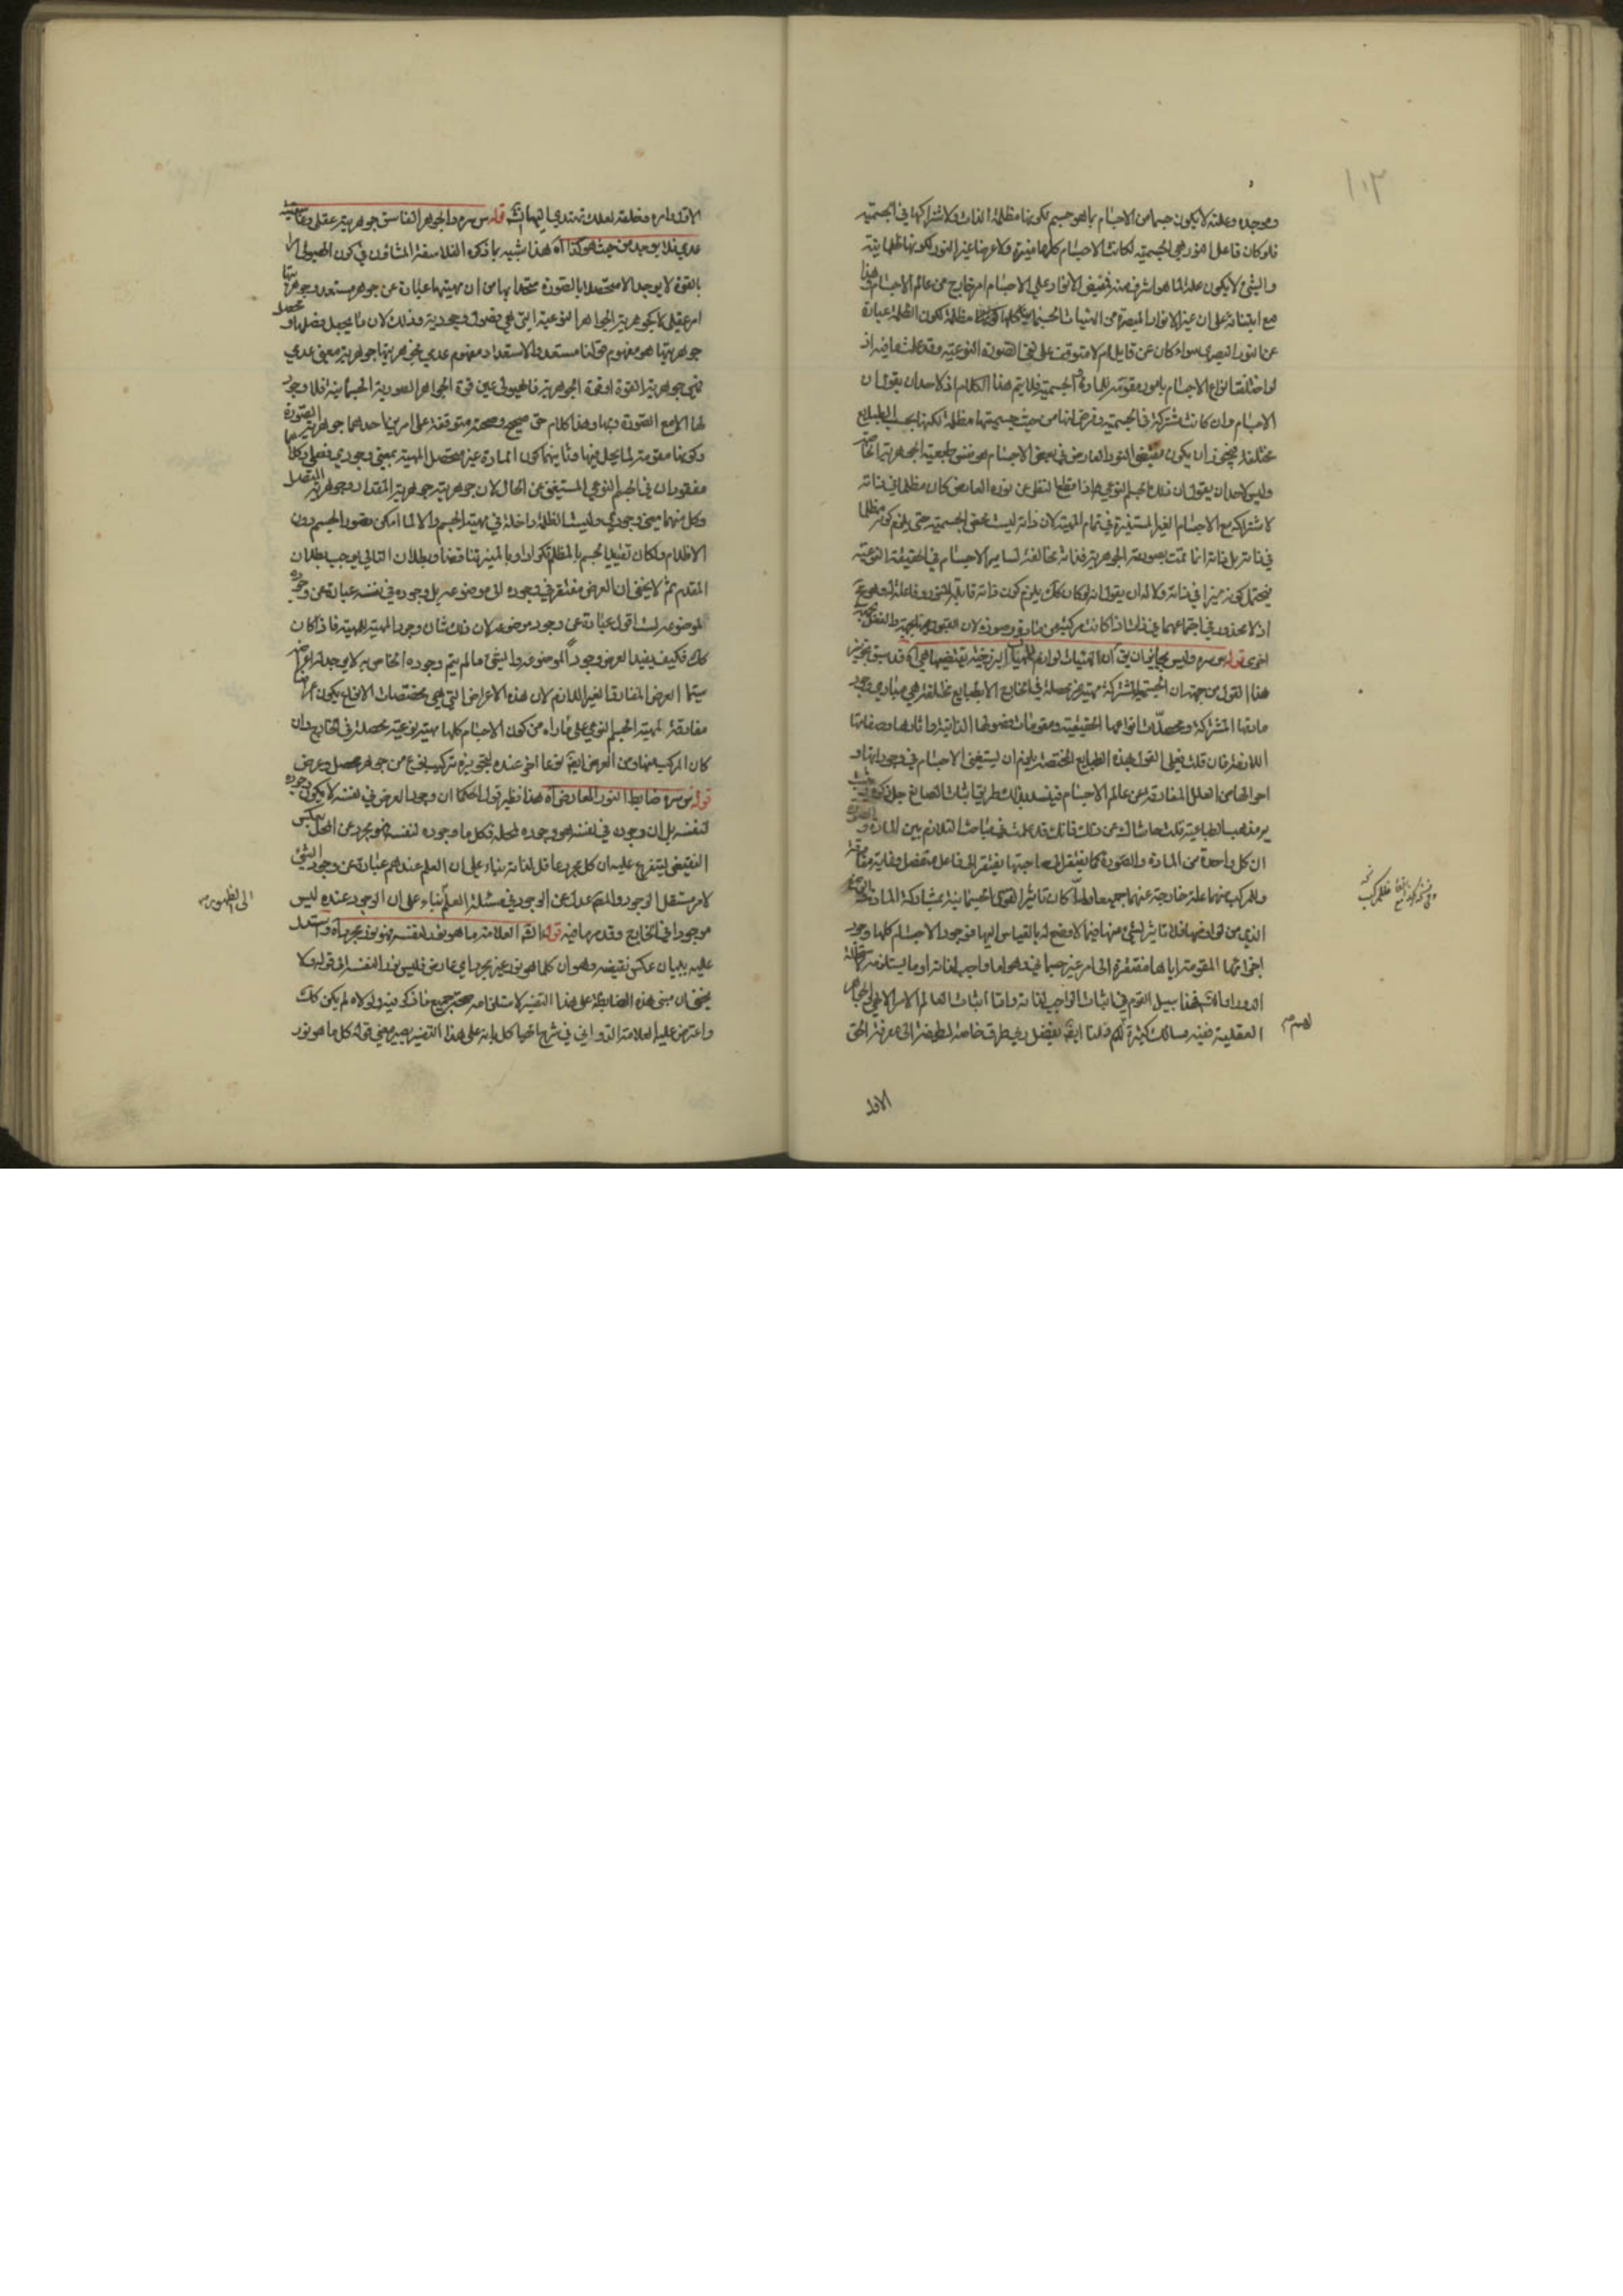 وموجده وعلته لا يكون جسما من الاجسام بما هو جسم لكونها مظلمة الذات ولاشتراكها في الجسمية
فلو كان فاعل النور هي الجسمية لكانت الاجسام كلها منيرة ولا عرضا غير النور لكونها ظلمانية
والشئ لا يكون علة لما هو اشرف منه فمفيض الانوار على الاجسام امر خارج عن عالم الاجسام وهذا
مع ابتنائه على ان غير الانوار المبصرة من الهيئات الجسمانية كلها مظلمة لكون الظلمة عبارة
عن النور البصري سواء كان عن قابل ام لا متوقف على نفي الصورة النوعية وقد علمت ما فيه اذ
لو اختلفت انواع الاجسام بامور مقومة للمادة الجسمية فلا يتم هذا الكلام اذ لاحد ان يقول ان
الاجسام وان كانت مشتركة في الجسمية وفرض انها من حيث جسميتها مظلمة لكنها بحسب الطبايع
مختلفة فيجوز ان يكون مقتضى النور العارض في بعض الاجسام هو نفس طبيعته الجوهرية الخاصة
وليس لاحد ان يقول ان ذلك الجسم النوعي اذا قطع النظر عن نوره العارض كان مظلما في ذاته
لاشتراكه مع الاجسام الغير المستنيرة في تمام المهية لان ذاته ليست محض الجسمية حتى يلزم كونه مظلما
في ذاته بل ذاته انما تمت بصورته الجوهرية فذاته مخالفة لساير الاجسام في الحقيقة النوعية
فيحتمل كونه منيرا في ذاته ولا له ان يقول انه لو كان كك يلزم كون ذاته قابلة للنور وفاعلة له
اذ لا محذور في اجتماعهما في ذات اذا كانت مركبة من مادة وصورة لان القبول من جهة والفعل من جهة
اخرى قوله س سره وليس لجايز ان يق ان الهيئات لوازم للمهيات البرزخية تقتضيها هي اه قد سبق تجويز
هذا القول من جهة ان الجسمية المشتركة مهية غير محصلة في الخارج الا بطبايع مختلفة هي مبادي وجود
مادتها المشتركة ومحصلات انواعها الحقيقية ومقومات فصولها الذاتية واثارها وصفاتها
اللازمة فان قلت فعلى القول بهذه الطبايع المختصة يلزم ان يستغني الاجسام في وجوداتها و
احوالها من العلل المفارقة عن عالم الاجسام فينسد بذلك طريق اثبات الصانع جل ذكره
مذهب الطباعية قلت حاشاك عن ذلك فانك قد علمت في مباحث التلازم بين المادة والصورة
ان كل واحدة من المادة والصورة كما يفتقر الى صاحبتها يفتقر الى فاعل منفصل وغاية مفارقة
وللمركب منهما علة خارجة عنهما جميعا ولما كان تاثير القوى الجسمانية بمشاركة المادة
الذي من لوازمها فلا تاثير لشئ منها فيما لا وضع له بالقياس اليها فوجود الاجسام كلها وجود
اجزائها المقومة اياها مفتقرة الى امر غير جسماني وهو اما واجب لذاته او ما يستلزمه لاستحالة
الدور او التسلسل فهذا سبيل القوم في اثبات الواجب لذاته واما اثبات العالم الامر الالهي والجواهر
العقلية ففيه مسالك كثيرة لهم ولنا ايضا بفضل ربي طرق خاصة لطيفة الى معرفة الحق
الاول
١٠٢
الاول وامره وخلقه لعلك تهتدي اليها انش قوله س سره والجوهر الغاسق جوهريته عقلية وغاسقيته
عدمي فلا يوجد من حيث هو كذا اه هذا شبيه بما ذكره الفلاسفة المشاؤن في كون الهيولى الا
بالقوة لا يوجد الا متحصلا بالصورة متحدا بها من ان مهيتها عبارة عن جوهر مستعد وجوهريتها
امر عقلي كما كجوهرية الجواهر النوعية التي هي فصول وجودية وذلك لان ما يجعل فصلها و محصل
جوهريتها هو مفهوم قولنا مستعد والاستعداد مفهوم عدمي فجوهريتها جوهرية معنى عدمي
فهي جوهرية القوة او قوة الجوهرية فالهيولى عين قوة الجواهر الصورية الجسمانية فلا وجود
لها الا مع الصورة وبها وهذا كلام حق صحيح وصحته متوقفة على امرين احدهما جوهرية الصورة
وكونها مقومة لما يحل فيها وثانيهما كون المادة غير متحصل المهية بمعنى وجودي وفعلي وكلاهما
مفقودان في الجسم النوعي المستغني عن الحال لان جوهريته جوهرية المقدار وجوهرية المتصل
وكل منهما معنى وجودي وليست الظلمة داخلة في مهية الجسم والا لما امكن تصور الجسم دون
الاظلام ولكان تقييد الجسم بالمظلم تكرارا وبالمنير تناقضا وبطلان التالي يوجب بطلان
المقدم ثم لا يخفى ان العرض مفتقر في وجوده الى موضوعه بل وجوده في نفسه عبارة عن وجوده
لموضوعه لست اقول عبارة عن وجود موضوعه لان ذلك شان وجود المهية للمهية فاذا كان
كك فكيف يفيد العرض وجودا لموضوعه والشئ ما لم يتم وجوده الخاص به لا يوجد له اعراض
سيما العرض المفارق الغير اللازم لان هذه الاعراض التي هي مخصصات الانواع يكون اعراضا
مفارقة لمهية الجسم النوعي على ما راه من كون الاجسام كلها مهية نوعية محصلة في الخارج وان
كان المركب منها ومن العرض ايضا نوعا اخر عنده لتجويزه تركيب نوع من جوهر محصل وعرض
قوله س سره ضابط النور العارض اه هذا نظير قول الحكما ان وجود العرض في نفسه لا يكون وجوده
لنفسه بل ان وجوده في نفسه هو وجوده لمحله فكل ما وجوده لنفسه فهو مجرد عن المحل بعكس
النقيض ليتفرع عليه ان كل مجرد عاقل لذاته بناء على ان العلم عندهم عبارة عن وجود الشئ
لامر مستقل الوجود والمصم عدل عن الوجود في مسئلة العلم بناء على ان الوجود عنده ليس
موجودا في الخارج وقد مر ما فيه قوله الش العلامة ما هو نور لنفسه فهو نور مجرد اه واستدل
عليه ببيان عكس نقيضه وهو ان كل ما هو نور غير مجرد اي عارض فليس نورا لنفسه الى قوله ولا
يخفى ان مبنى هذه الضابطة على هذا التفسير لاستلزامه صحة جميع ما ذكر فيه ولولاه لم يكن كك
واعترض عليه العلامة الدواني في شرح الهياكل بانه على هذا التفسير يصير معنى قوله كل ما هو نور
الى الظهور